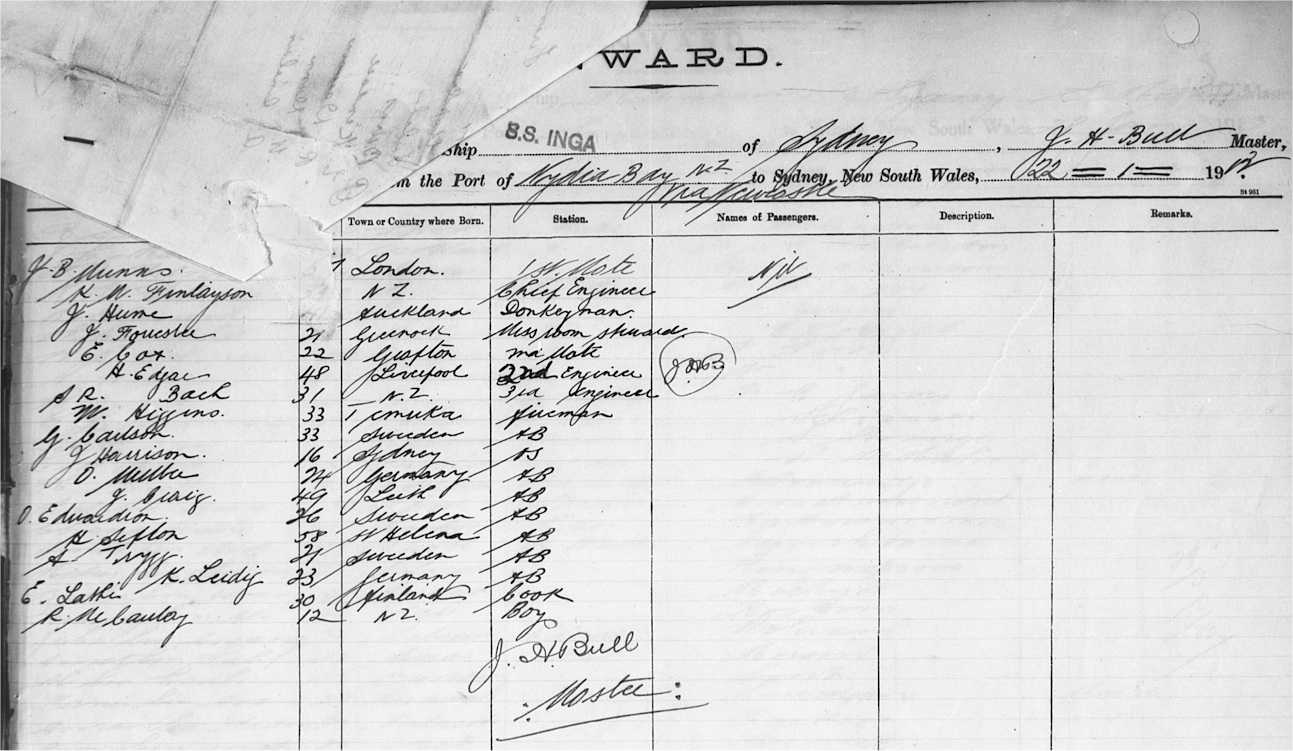 WARD.
ship S.S. INGA of Sydney, J. H. Bull Master,
m the Port of Nydia Bay N.Z to Sydney, New South Wales, 22 = 1 = 19
via Newcastle
St 961
Town or Country where Born. Station. Names of Passengers. Description. Remarks.
J. B. Munns. London. 1st. Mate Nil
K. M. Finlayson N Z. Chief Engineer
J. Hume Auckland Donkeyman.
J. Forrester 21 Greenock Mess room steward
E. Cox. 22 Grafton Mate
H. Edgar 48 Liverpool 2nd Engineer J.H.B.
S R. Bach 31 N.Z. 3rd Engineer
W. Higgins. 33 Temuka Fireman
G. Carlson. 33 Sweden AB
J Harrison. 16 Sydney OS
O. Muller 24 Germany AB
J. Craig. 49 Leith AB
O. Edvardson. 26 Sweden AB
H Sefton 58 St Helena AB
A Trygg. 21 Sweden AB
K. Leidig 23 Germany AB
E. 30 Finland Cook
R. McCauley 12 N Z. Boy
J. H. Bull
: Master :